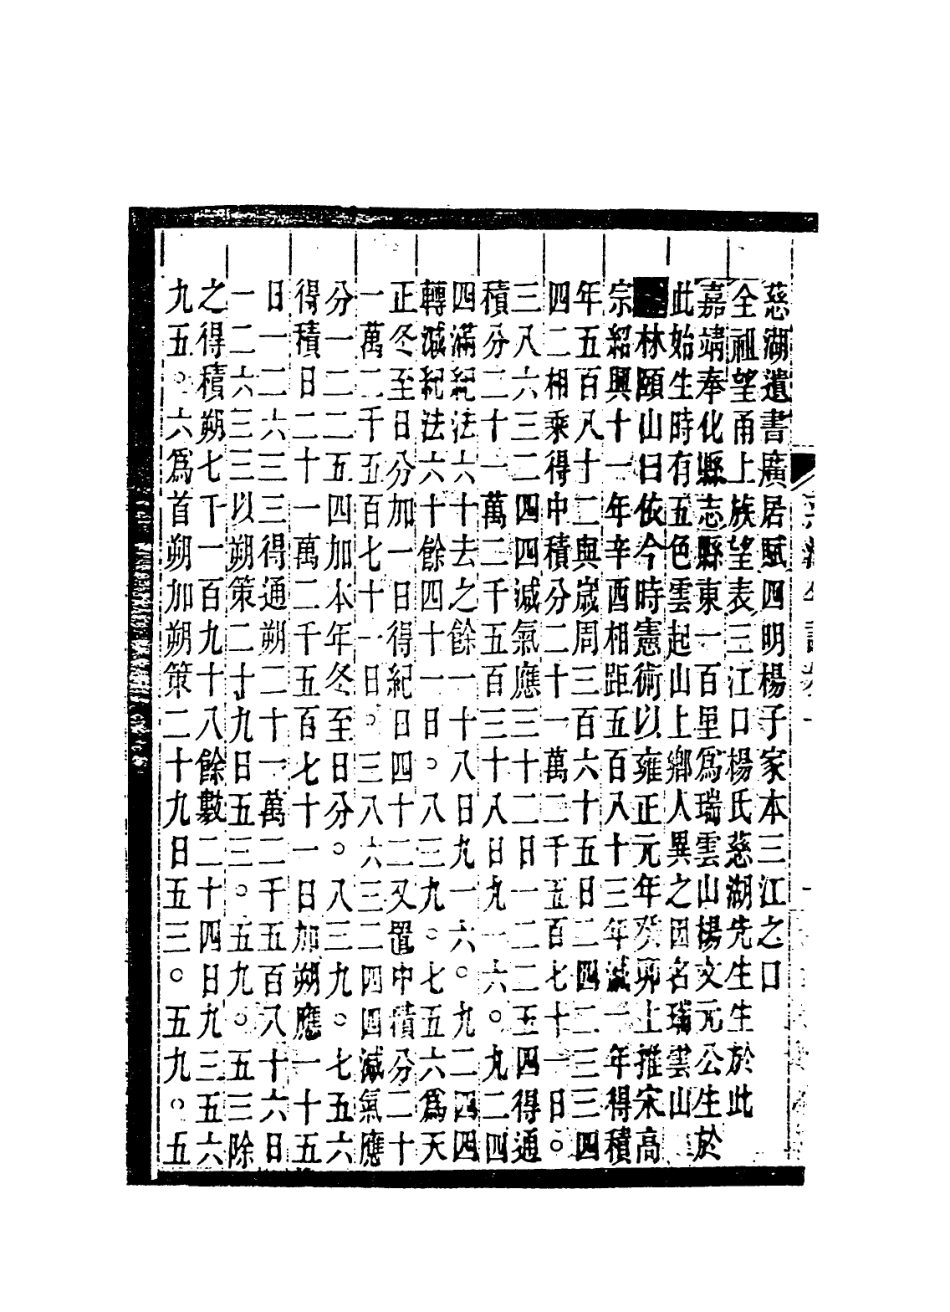 慈湖遺書廣居賦四明楊子家本三江之口
全祖望甬上族望表三江口楊氏慈湖先生生於此
嘉靖奉化縣志縣東一百里爲瑞雲山楊文元公生於
此始生時有五色雲起山上鄉人異之因名瑞雲山
林頤山曰依今時憲術以雍正元年癸卯上推宋高
宗紹興十一年辛酉相距五百八十三年減一年得積
年五百八十二與歲周三百六十五日二四二三三四
四二相乘得中積分二十一萬二千五百七十一日〇
三八六三二四四減氣應三十二日一二二五四得通
積分二十一萬二千五百三十八日九一六〇九二四
四滿紀法六十去之餘一十八日九一六〇九二四四
轉減紀法六十餘四十一日〇八三九〇七五六爲天
正冬至日分加一日得紀日四十二又置中積分二十
一萬二千五百七十一日〇三八六三二四四減氣應
分一二二五四加本年冬至日分〇八三九〇七五六
得積日二十一萬二千五百七十一日加朔應一十五
日一二六三三得通朔二十一萬二千五百八十六日
一二六三三以朔策二十九日五三〇五九〇五三除
之得積朔七千一百九十八餘數二十四日九三五六
九五〇六爲首朔加朔策二十九日五三〇五九〇五